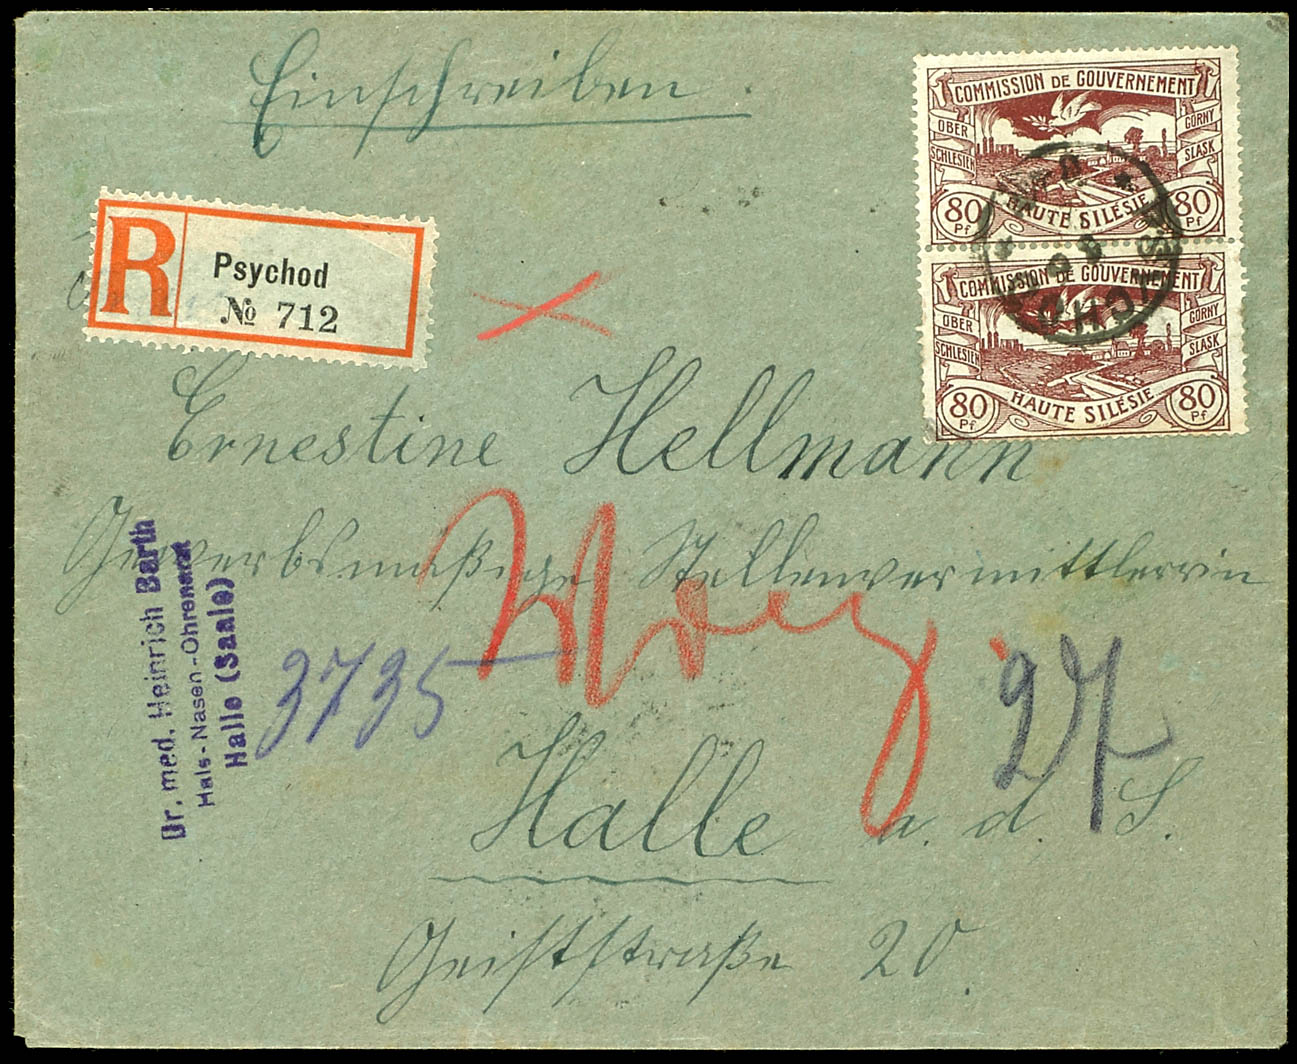 Einschreiben.
COMMISSION DE GOUVERNEMENT
OBER SCHLESIEN
GÓRNY SLASK
80 Pf
HAUTE SILESIE
80 Pf
COMMISSION DE GOUVERNEMENT
OBER SCHLESIEN
GÓRNY SLASK
80 Pf
HAUTE SILESIE
80 Pf
R
Psychod
№ 712
Ernestine Hellmann
Gewerbsmäßige Stellenvermittlerin
Dr. med. Heinrich Barth
Hals-Nasen-Ohrenarzt
Halle (Saale)
3735
27
Halle a. d. S.
Geiststraße 20.